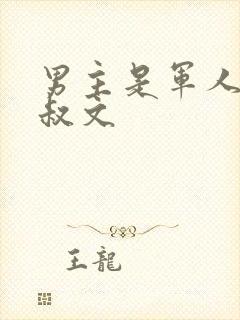 男主是軍人
叔文
王龍